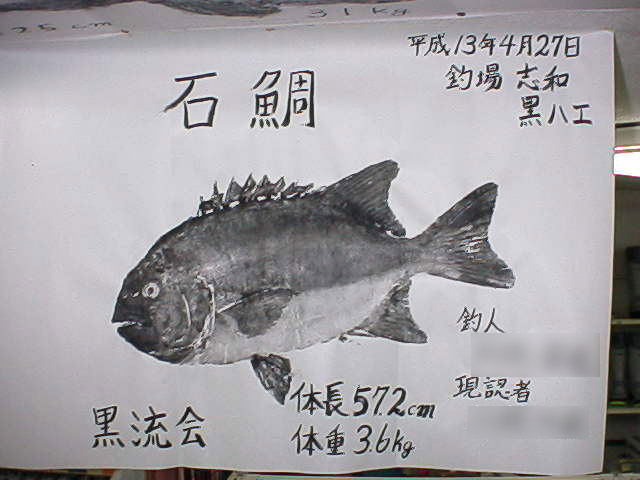 31kg
平成13年4月27日
石鯛
釣場 志和
黒ハエ
釣人
現認者
体長57.2cm
体重3.6kg
黒流会